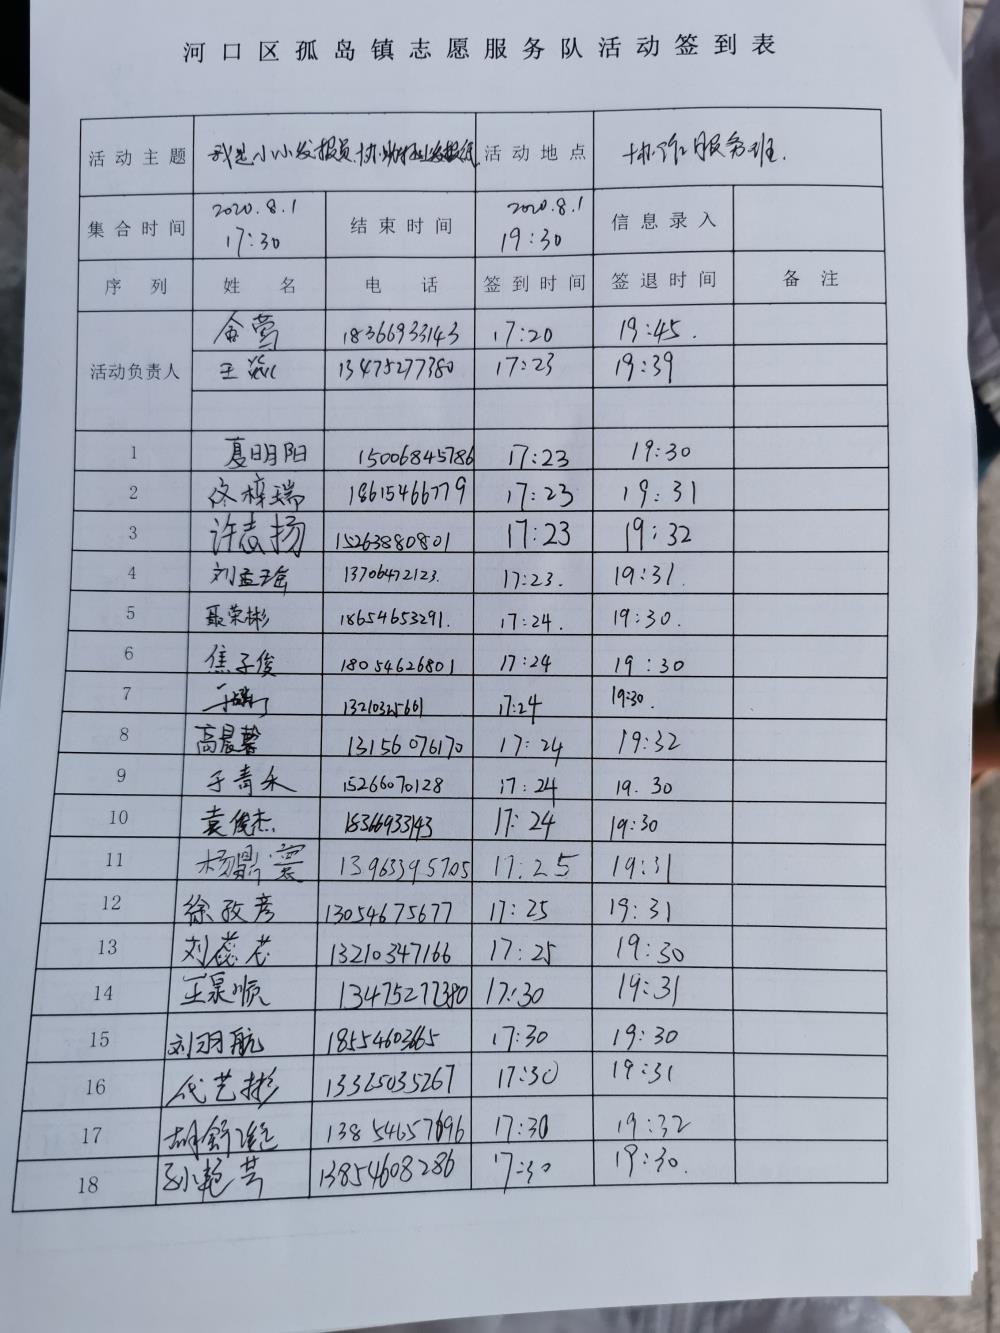 河口区孤岛镇志愿服务队活动签到表
活动主题 我是小小发报员 活动地点 协作服务班.
集合时间 2020.8.1 17:30 结束时间 2020.8.1 19:30 信息录入
序列 姓名 电话 签到时间 签退时间 备注
活动负责人
金莺 18366933143 17:20 19:45.
王 13475277380 17:23 19:39
1 夏明阳 15006845786 17:23 19:30
2 佟梓瑞 18615466779 17:23 19:31
3 许志扬 15263880801 17:23 19:32
4 刘孟瑶 13706472123. 17:23. 19:31.
5 聂荣彬 18654653291. 17:24. 19:30.
6 焦子俊 18054626801 17:24 19:30
7 13210325601 17:24 19:30.
8 高晨馨 13156076170 17:24 19:32
9 于青永 15266070128 17:24 19.30
10 袁俊杰 18366933143 17:24 19:30
11 杨鼎寰 13963395705 17:25 19:31
12 徐孜彦 13054675677 17:25 19:31
13 刘蕊芯 13210347166 17:25 19:30
14 王泉顺 13475277380 17:30 19:31
15 刘羽航 18554603665 17:30 19:30
16 代艺彬 13325035267 17:30 19:31
17 胡舒 13854657696 17:30 19:32
18 孙艳芸 13854608286 17:30 19:30.